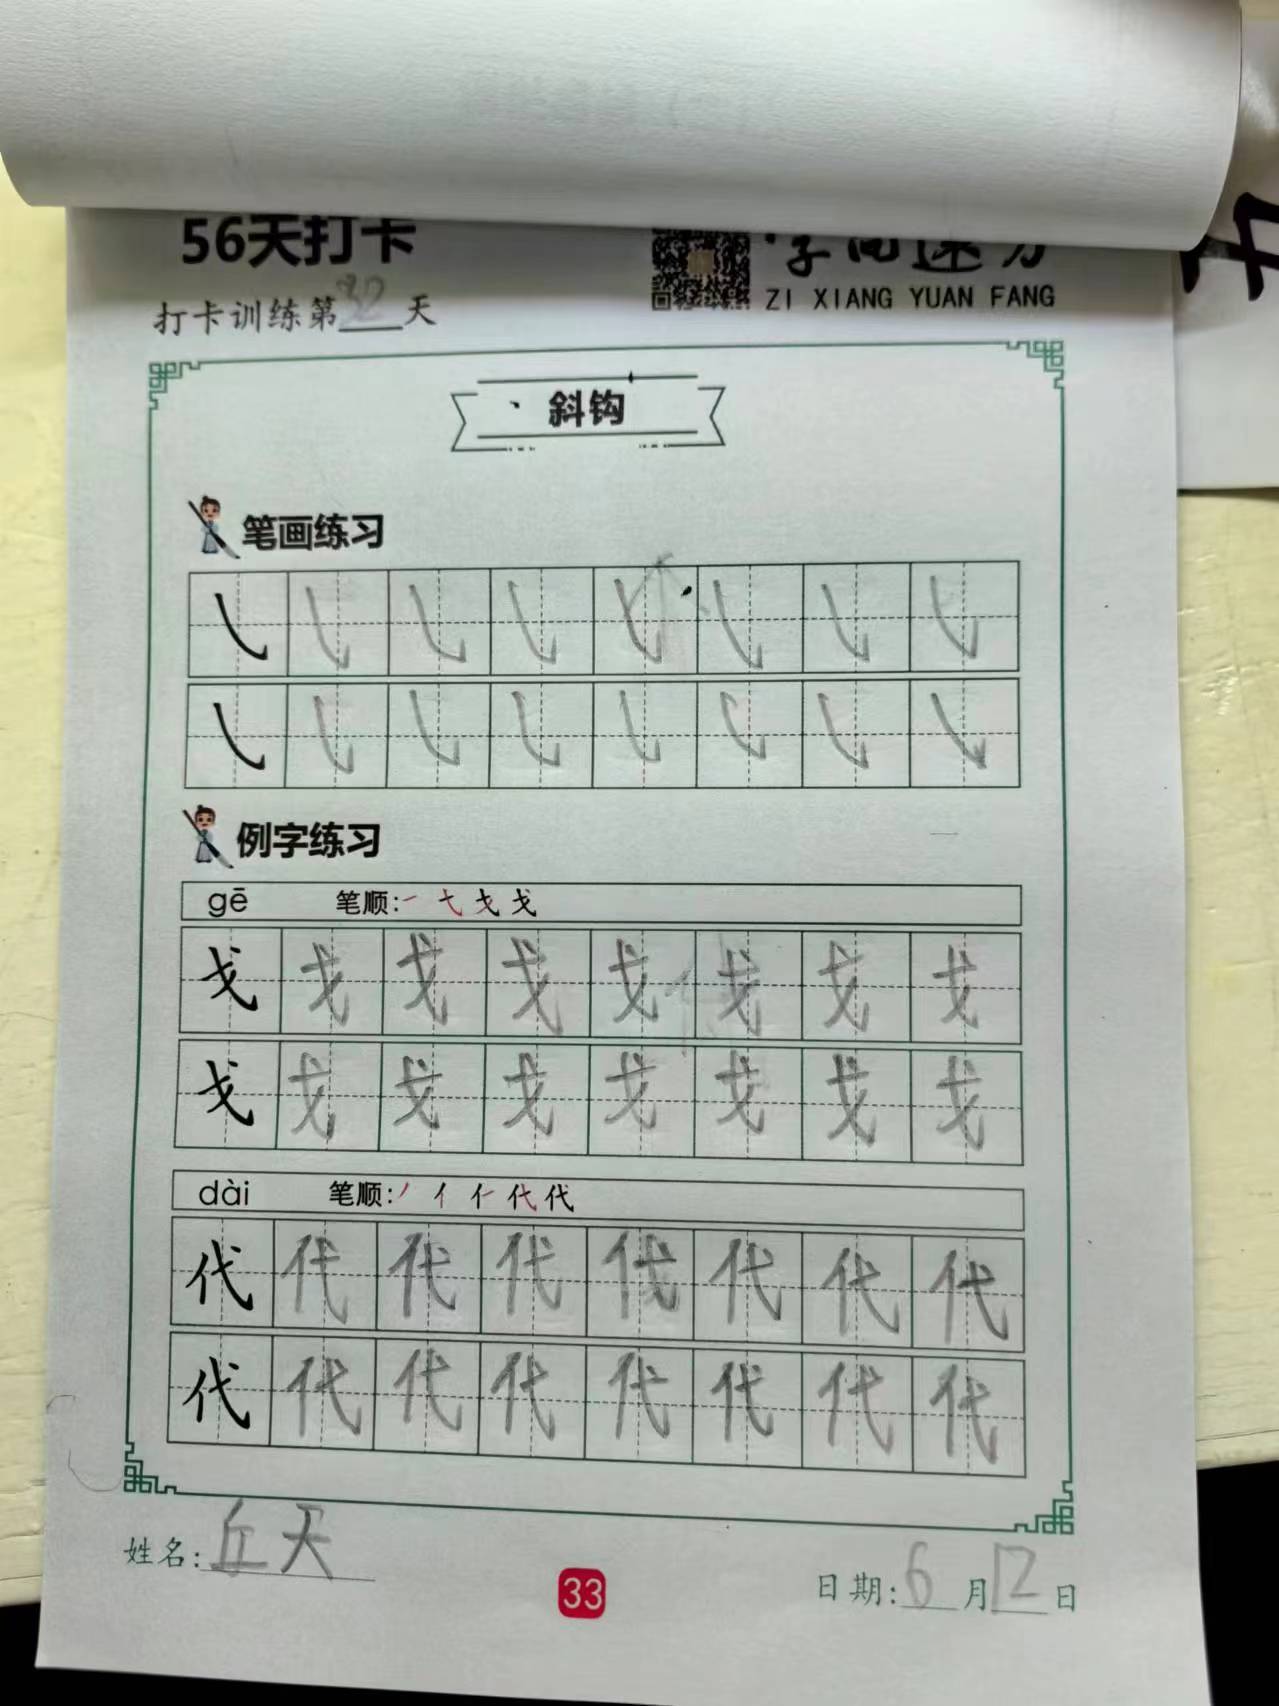 56天打卡
ZI XIANG YUAN FANG
打卡训练第32天
斜钩
笔画练习
例字练习
gē 笔顺:
戈 戈 戈 戈 戈 戈 戈 戈
戈 戈 戈 戈 戈 戈 戈 戈
dài 笔顺:
代 代 代 代 代 代 代 代
代 代 代 代 代 代 代 代
姓名:丘天
33
日期:6月12日